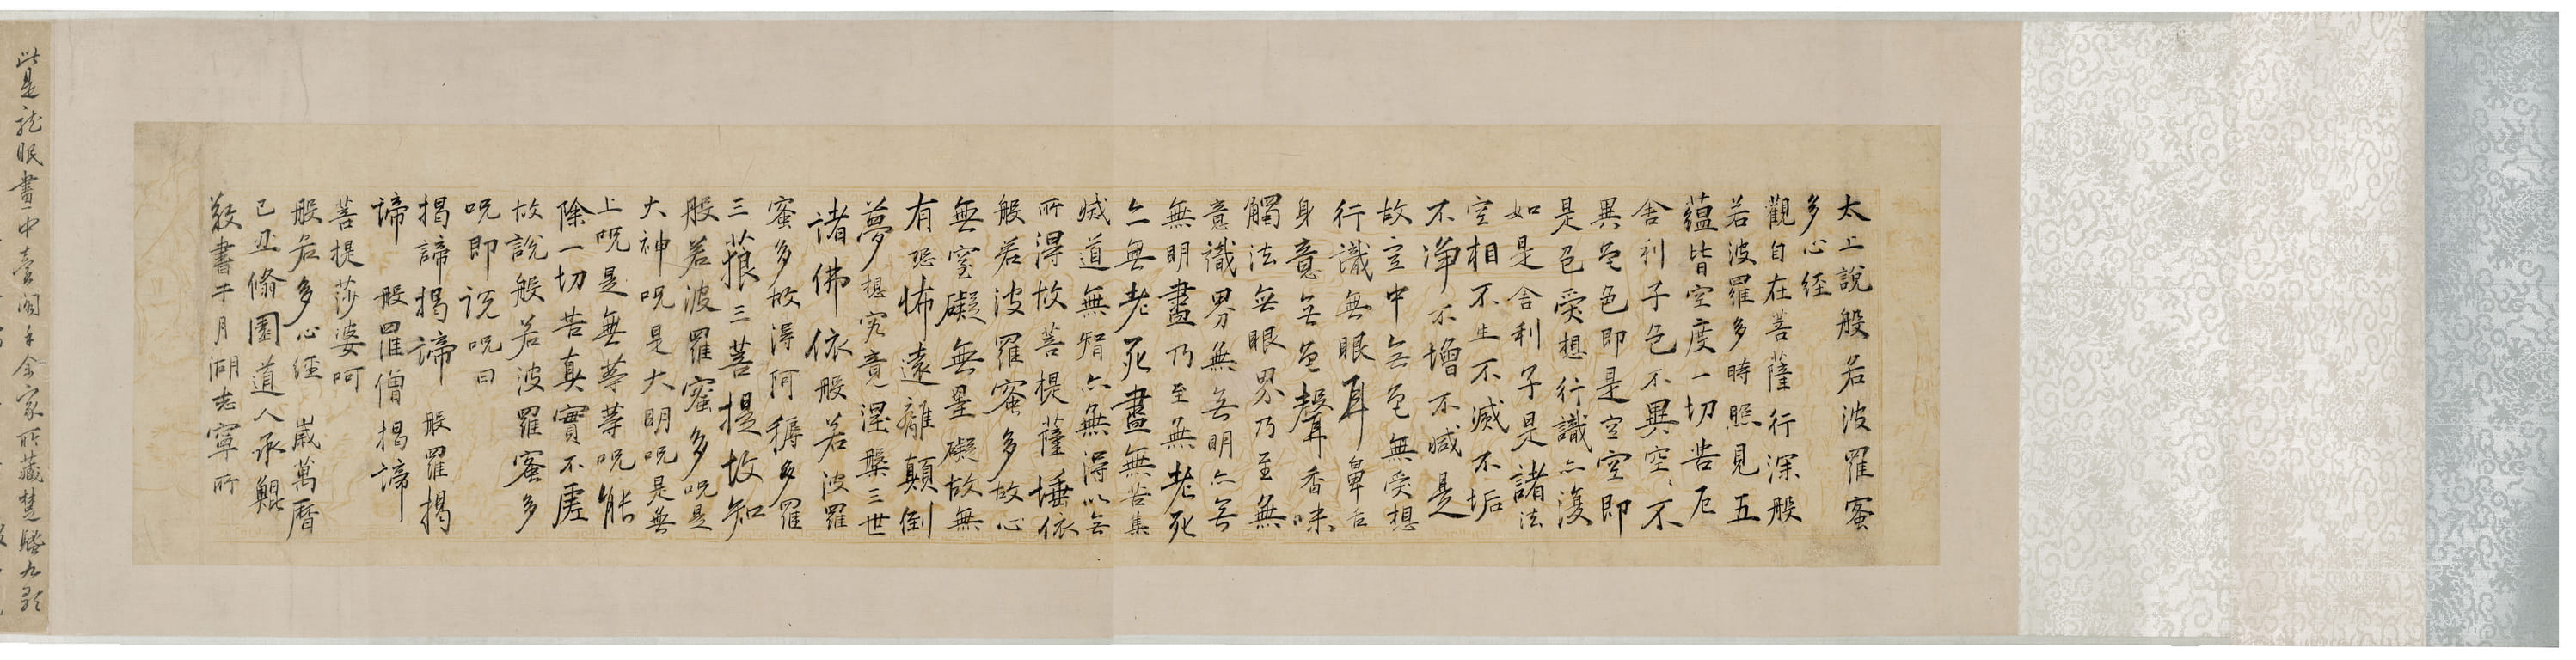 太上說般若波羅蜜
多心經
觀自在菩薩行深般
若波羅多時照見五
蘊皆空度一切苦厄
舍利子色不異空〻不
異色色即是空空即
是色受想行識亦復
如是舍利子是諸法
空相不生不滅不垢
不淨不增不減是
故空中無色無受想
行識無眼耳鼻舌
身意無色聲香味
觸法無眼界乃至無
意識界無無明亦無
無明盡乃至無老死
亦無老死盡無苦集
滅道無智亦無得以無
所得故菩提薩埵依
般若波羅蜜多故心
無罣礙無罣礙故無
有恐怖遠離顛倒
夢想究竟涅槃三世
諸佛依般若波羅
蜜多故得阿耨多羅
三藐三菩提故知
般若波羅蜜多呪是
大神呪是大明呪是無
上呪是無等等呪能
除一切苦真實不虛
故說般若波羅蜜多
呪即說呪曰
揭諦揭諦 般羅揭
諦 般羅僧揭諦
菩提莎婆呵
般若多心經 歲萬曆
己丑脩園道人承鯤
敬書于月湖志寧所
此是龍眠書中臺閣手余家所藏楚騷九歌